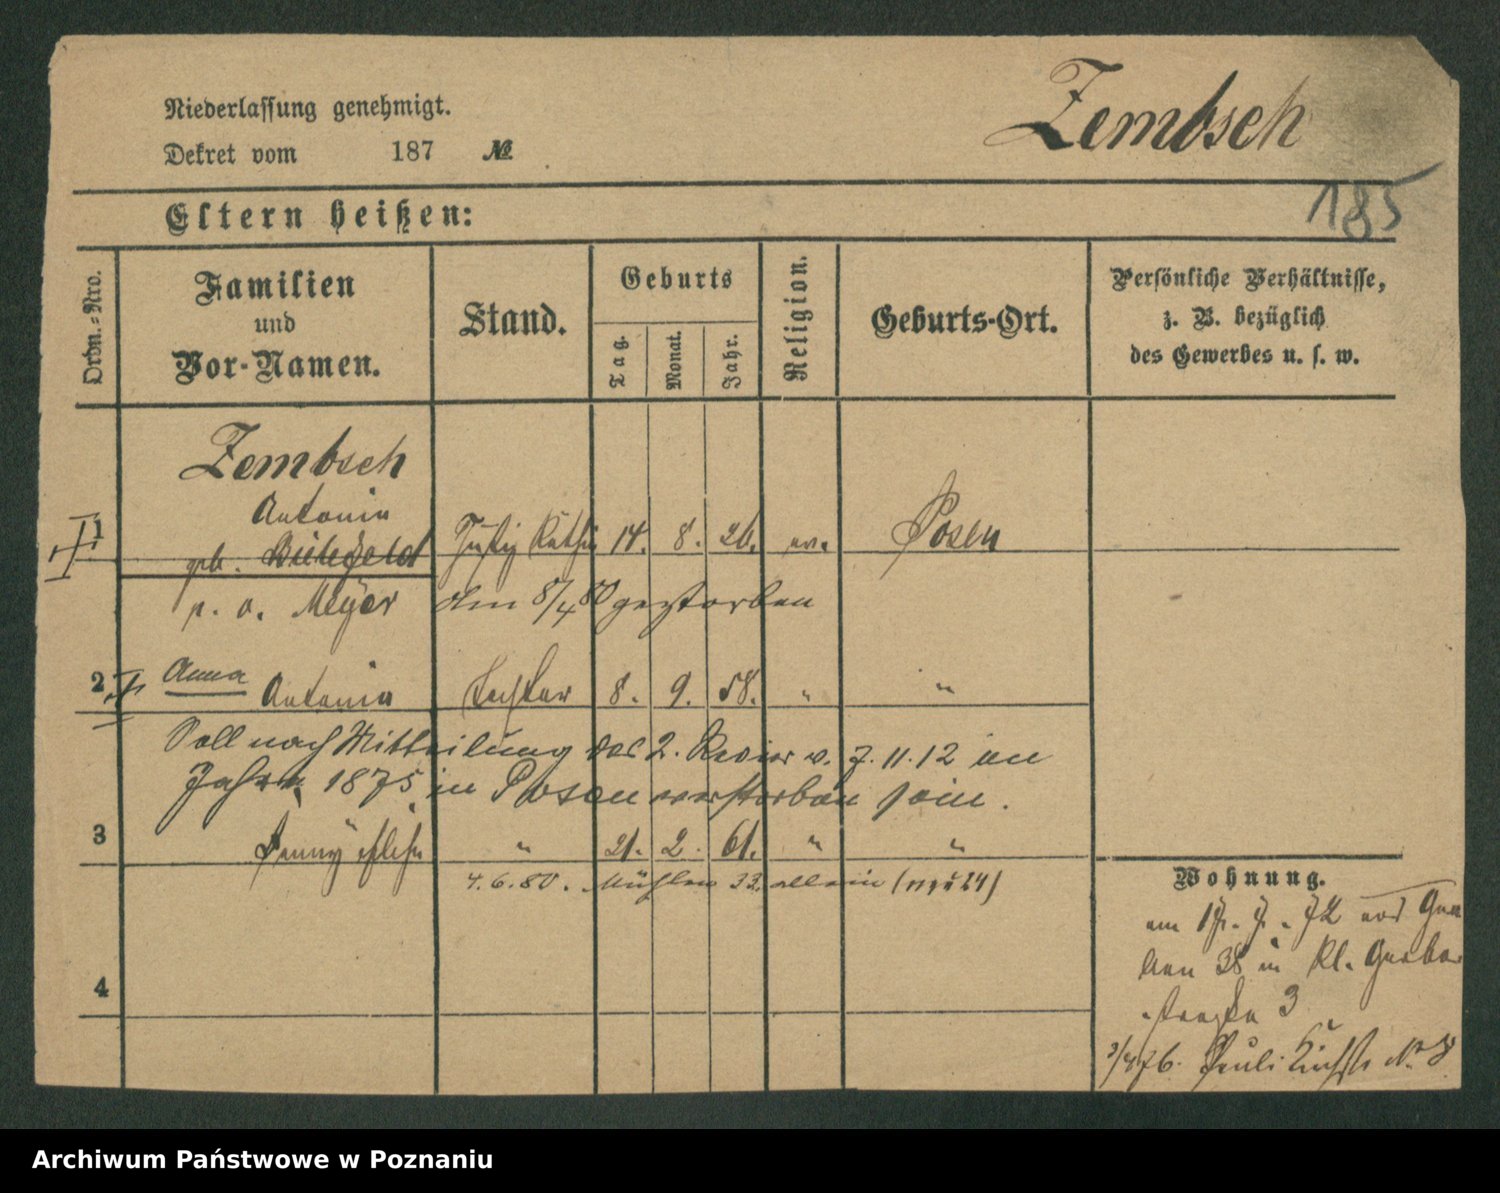 Niederlassung genehmigt.
Dekret vom 187 №
Zembsch
185
Eltern heißen:
Ordn.-Nro.
Familien
und
Vor-Namen.
Stand.
Geburts
Tag.
Monat.
Jahr.
Religion.
Geburts-Ort.
Persönliche Verhältnisse,
z. B. bezüglich
des Gewerbes u. s. w.
Zembsch
1 Antonie
geb. Bielefeld Justiz Räthin 14. 8. 26. ev. Posen
p. o. Meyer den 8/4 80 gestorben
2 Anna Antonie Tochter 8. 9. 58. " "
Soll nach Mitteilung des 2. Revier v. 7.11.12 im
Jahre 1875 in Posen verstorben sein.
3 Jenny " 21. 2. 61. " "
4.6.80. Mühlen 33. allein
4
Wohnung.
am 17. 7. 72 von
38 in Kl. Gerber
straße 3
3/4 76. Pauli Kirchstr No 8
Archiwum Państwowe w Poznaniu